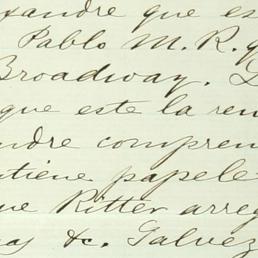 xandre que es
Pablo M. R. q
Broadway.
que este la ren
ndre compren
tiene papele
ue Ritter arreg
as &c. Galvez